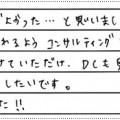 がよかった…と思いまし
れるよう コンサルティング
せていただけ、DCも
したいです。
た!!